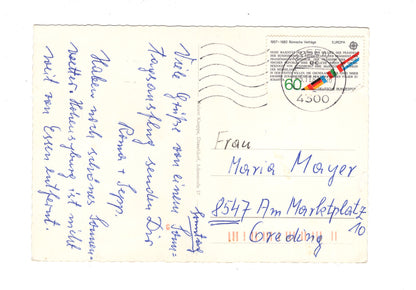 Viele Grüße von einem Sonn=
tagsausflug senden Dir
Roma + Sepp.
Haben noch schönes Sonnen-
wetter. Hohensyburg ist nicht
weit von Essen entfernt.
Sonntag
1957-1982 Römische Verträge EUROPA
60
DEUTSCHE BUNDESPOST
4300
Frau
Maria Mayer
8547 Am Marktplatz
10
Greding